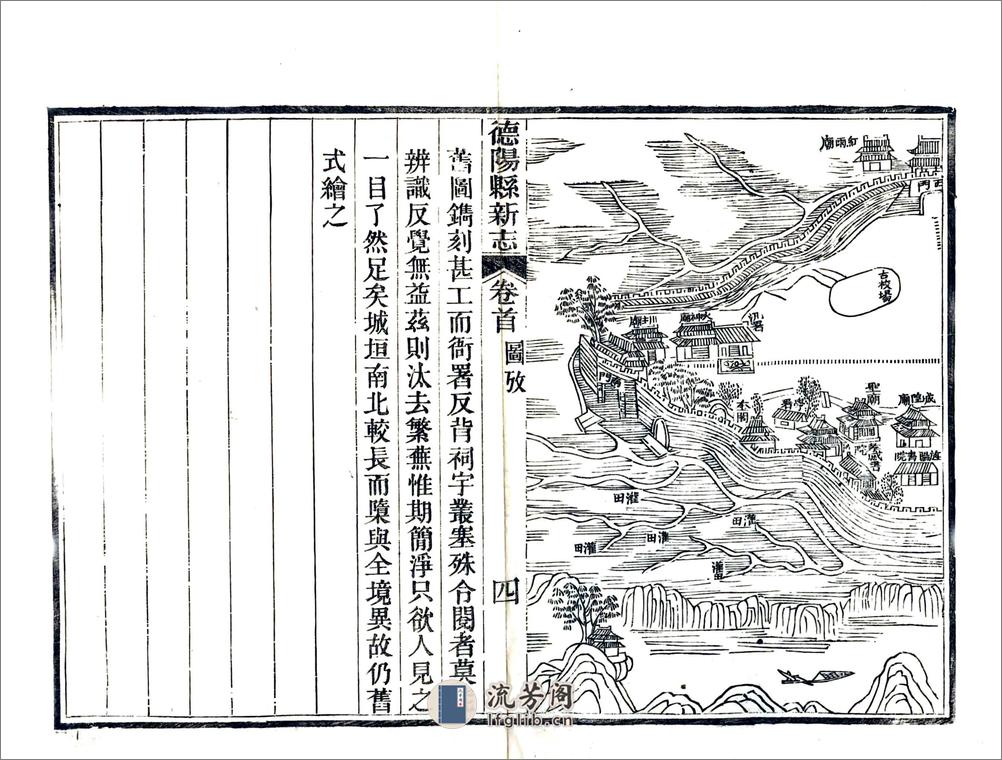 紅雨廟
西門
古校場
川主廟
火神廟
汛署
南門
奎閣
聖廟
城隍廟
孝感書院
灌田
灌田
灌田
灌田
灌田
德陽縣新志
卷首
圖攷
四
舊圖鐫刻甚工而衙署反背祠宇叢塞殊令閱者莫
辨識反覺無益茲則汰去繁蕪惟期簡淨只欲人見之
一目了然足矣城垣南北較長而隳與全境異故仍舊
式繪之
流芳阁
lfglib.cn